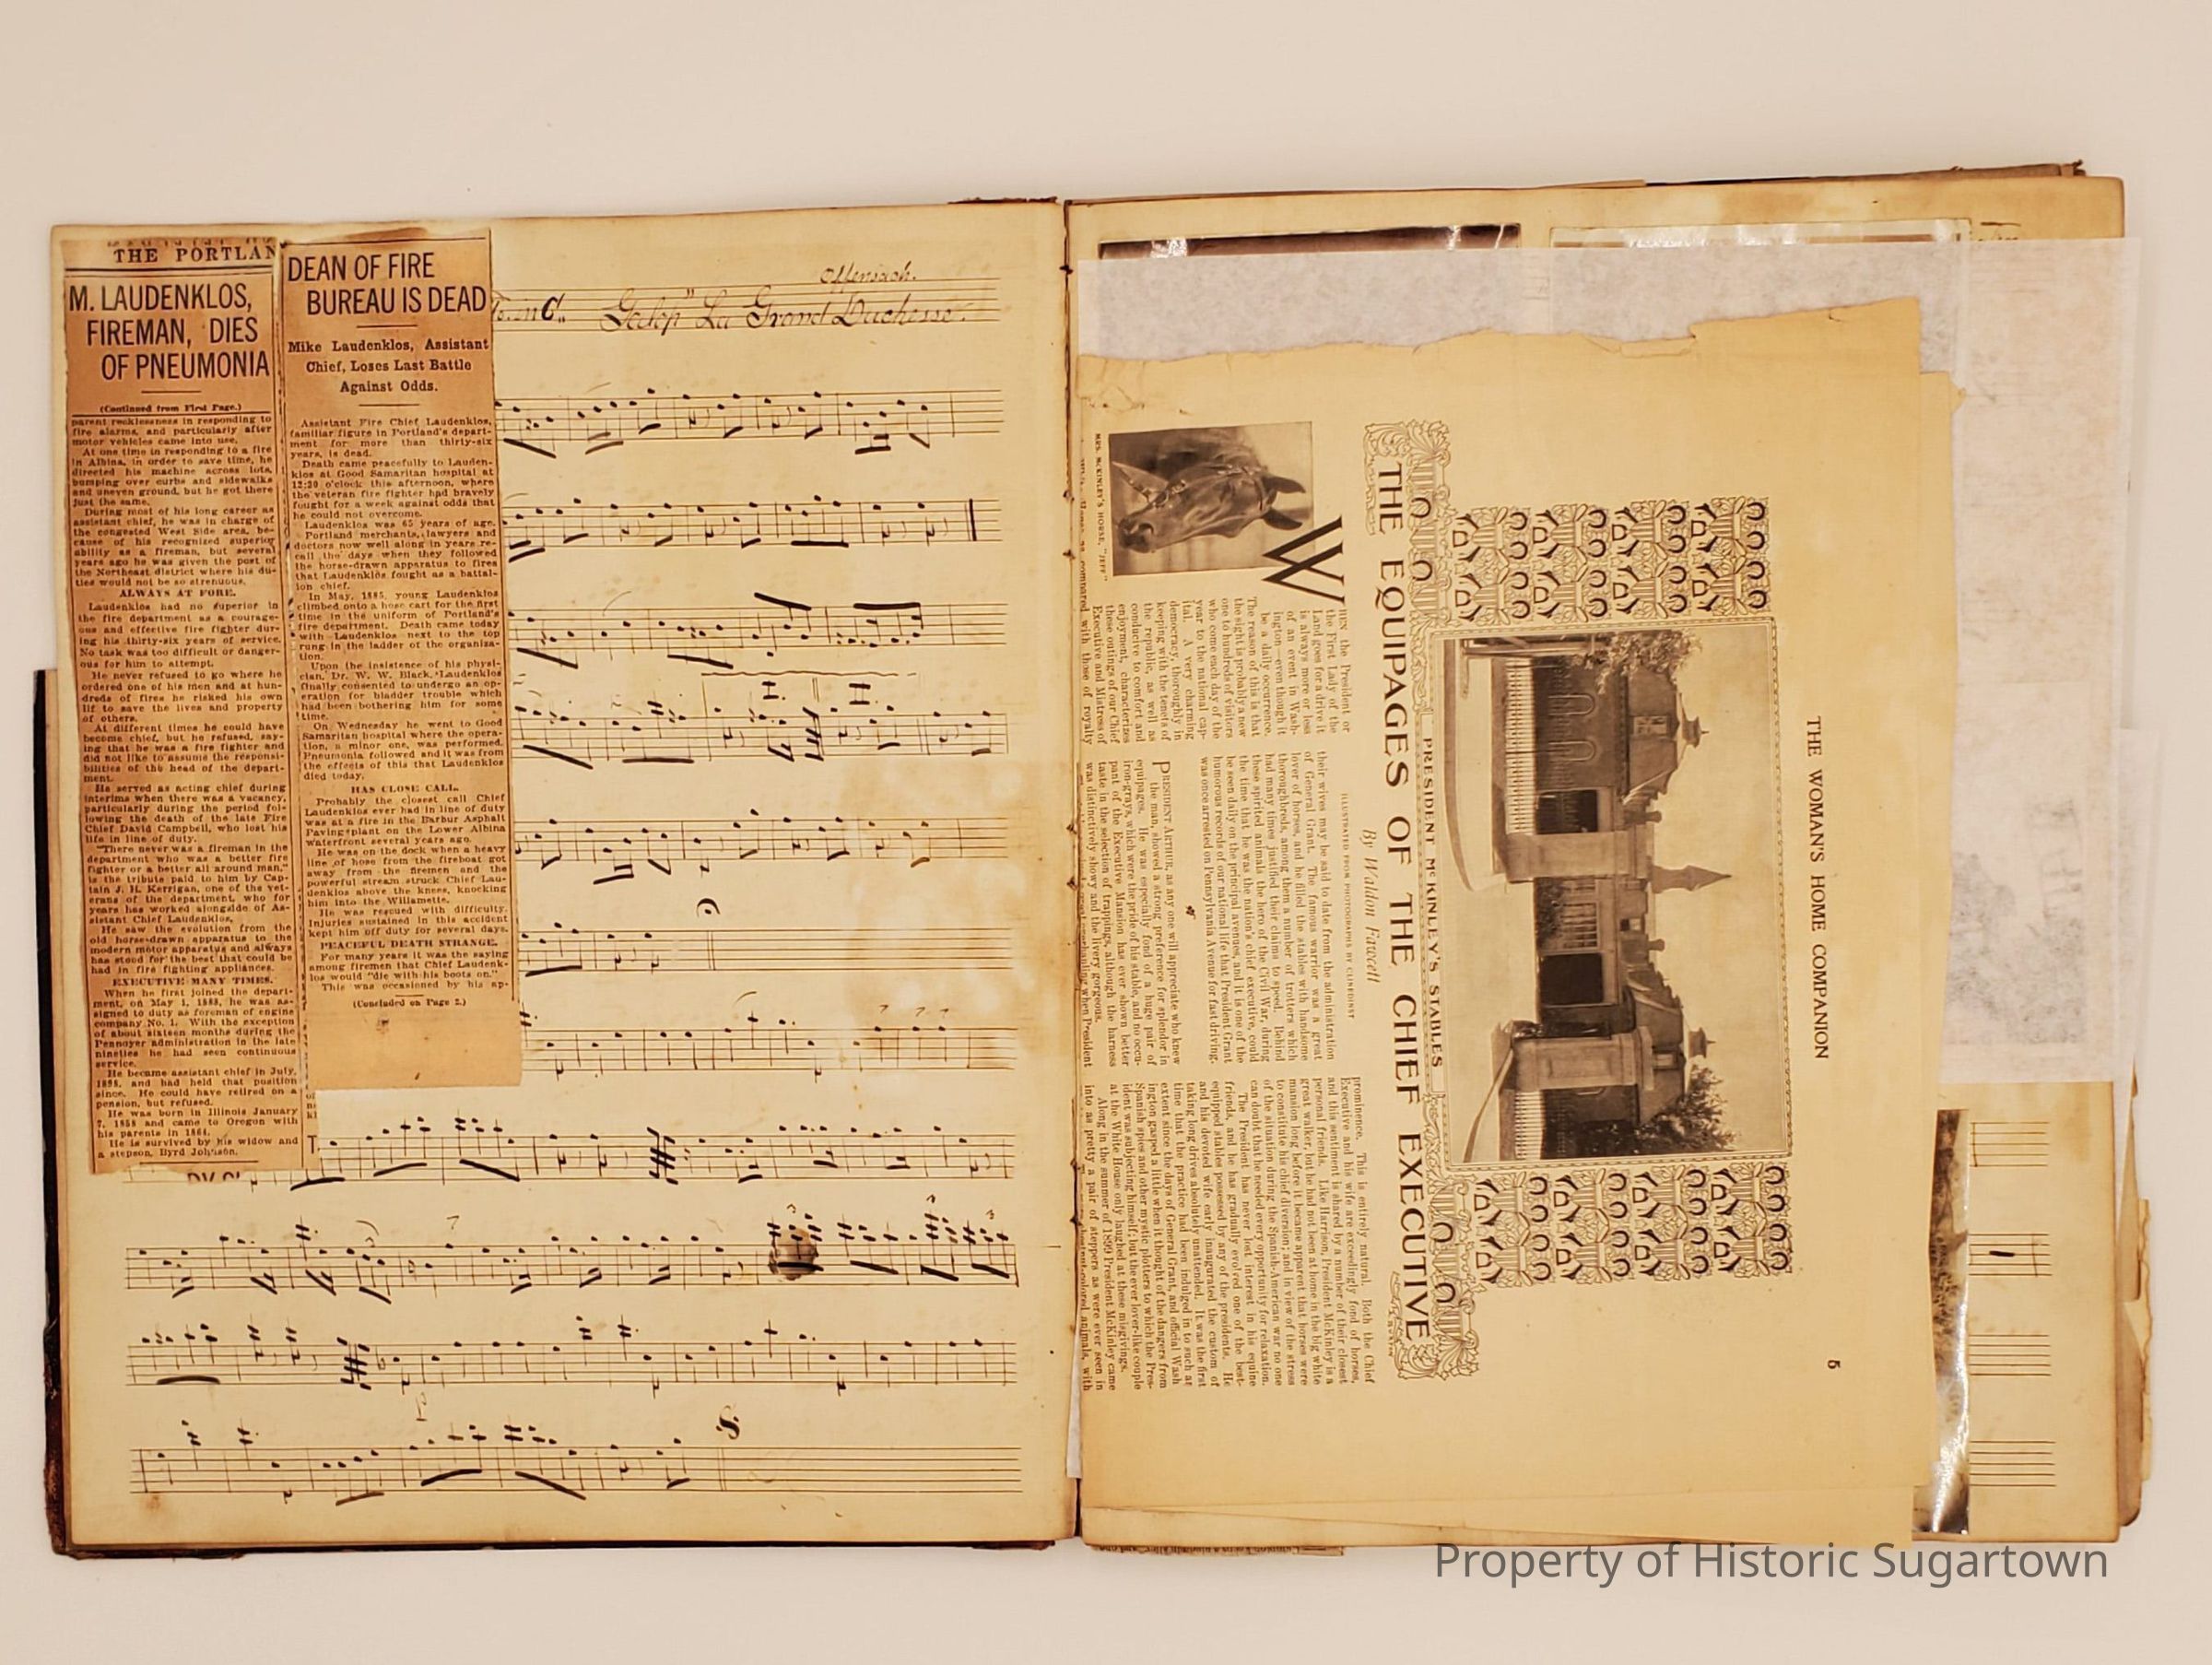 THE PORTLAN
M. LAUDENKLOS,
FIREMAN, DIES
OF PNEUMONIA
(Continued from First Page.)
parent recklessness in responding to
fire alarms, and particularly after
motor vehicles came into use.
At one time in responding to a fire
in Albina, in order to save time, he
directed his machine across lots,
bumping over curbs and sidewalks
and uneven ground, but he got there
just the same.
During most of his long career as
assistant chief, he was in charge of
the congested West Side area, be-
cause of his recognized superior
ability as a fireman, but several
years ago he was given the post of
the Northeast district where his du-
ties would not be so strenuous.
ALWAYS AT FORE.
Laudenklos had no superior in
the fire department as a courage-
ous and effective fire fighter dur-
ing his thirty-six years of service.
No task was too difficult or danger-
ous for him to attempt.
He never refused to go where he
ordered one of his men and at hun-
dreds of fires he risked his own
lif to save the lives and property
of others.
At different times he could have
become chief, but he refused, say-
ing that he was a fire fighter and
did not like to assume the responsi-
bilities of the head of the depart-
ment.
He served as acting chief during
interims when there was a vacancy,
particularly during the period fol-
lowing the death of the late Fire
Chief David Campbell, who lost his
life in line of duty.
"There never was a fireman in the
department who was a better fire
fighter or a better all around man,"
is the tribute paid to him by Cap-
tain J. H. Kerrigan, one of the vet-
erans of the department, who for
years has worked alongside of As-
sistant Chief Laudenklos.
He saw the evolution from the
old horse-drawn apparatus to the
modern motor apparatus and always
has stood for the best that could be
had in fire fighting appliances.
EXECUTIVE MANY TIMES.
When he first joined the depart-
ment, on May 1, 1885, he was as-
signed to duty as foreman of engine
company No. 1. With the exception
of about sixteen months during the
Pennoyer administration in the late
nineties he had seen continuous
service.
He became assistant chief in July,
1898, and had held that position
since. He could have retired on a
pension, but refused.
He was born in Illinois January
7, 1858 and came to Oregon with
his parents in 1864.
He is survived by his widow and
a stepson, Byrd Johnson.
DEAN OF FIRE
BUREAU IS DEAD
Mike Laudenklos, Assistant
Chief, Loses Last Battle
Against Odds.
Assistant Fire Chief Laudenklos,
familiar figure in Portland's depart-
ment for more than thirty-six
years, is dead.
Death came peacefully to Lauden-
klos at Good Samaritan hospital at
12:20 o'clock this afternoon, where
the veteran fire fighter had bravely
fought for a week against odds that
he could not overcome.
Laudenklos was 65 years of age.
Portland merchants, lawyers and
doctors now well along in years re-
call the days when they followed
the horse-drawn apparatus to fires
that Laudenklos fought as a battal-
ion chief.
In May, 1885, young Laudenklos
climbed onto a hose cart for the first
time in the uniform of Portland's
fire department. Death came today
with Laudenklos next to the top
rung in the ladder of the organiza-
tion.
Upon the insistence of his physi-
cian, Dr. W. W. Black, Laudenklos
finally consented to undergo an op-
eration for bladder trouble which
had been bothering him for some
time.
On Wednesday he went to Good
Samaritan hospital where the opera-
tion, a minor one, was performed.
Pneumonia followed and it was from
the effects of this that Laudenklos
died today.
HAS CLOSE CALL.
Probably the closest call Chief
Laudenklos ever had in line of duty
was at a fire in the Barbur Asphalt
Paving plant on the Lower Albina
waterfront several years ago.
He was on the dock when a heavy
line of hose from the fireboat got
away from the firemen and the
powerful stream struck Chief Lau-
denklos above the knees, knocking
him into the Willamette.
He was rescued with difficulty.
Injuries sustained in this accident
kept him off duty for several days.
PEACEFUL DEATH STRANGE.
For many years it was the saying
among firemen that Chief Laudenk-
los would "die with his boots on."
This was occasioned by his ap-
(Concluded on Page 2.)
Offenbach.
Galop" La Grand Duchesse.
THE WOMAN'S HOME COMPANION
5
PRESIDENT McKINLEY'S STABLES
THE EQUIPAGES OF THE CHIEF EXECUTIVE
By Waldon Fawcett
ILLUSTRATED FROM PHOTOGRAPHS BY CLINEDINST
MRS. McKINLEY'S HORSE, "JEFF"
WHEN the President or
the First Lady of the
Land goes for a drive it
is always more or less
of an event in Wash-
ington—even though it
be a daily occurrence.
The reason of this is that
the sight is probably a new
one to hundreds of visitors
who come each day of the
year to the national cap-
ital. A very charming
democracy, thoroughly in
keeping with the tenets of
the republic, as well as
conducive to comfort and
enjoyment, characterizes
these outings of our Chief
Executive and Mistress of
compared with those of royalty
their wives may be said to date from the administration
of General Grant. The famous warrior was a great
lover of horses, and he filled the stables with handsome
thoroughbreds, among them a number of trotters which
had many times justified their claims to speed. Behind
these spirited animals the hero of the Civil War, during
the time that he was the nation's chief executive, could
be seen daily on the principal avenues, and it is one of the
humorous records of our national life that President Grant
was once arrested on Pennsylvania Avenue for fast driving.
PRESIDENT ARTHUR, as any one will appreciate who knew
the man, showed a strong preference for splendor in
equipages. He was especially fond of a huge pair of
iron-grays, which were the pride of his stable, and no occu-
pant of the Executive Mansion has ever shown better
taste in the selection of trappings, although the harness
was distinctively showy and the livery gorgeous.
when President
prominence. This is entirely natural. Both the Chief
Executive and his wife are exceedingly fond of horses,
and this sentiment is shared by a number of their closest
personal friends. Like Harrison, President McKinley is a
great walker, but he had not been at home in the big white
mansion long before it became apparent that horses were
to constitute his chief diversion; and in view of the stress
of the situation during the Spanish-American war no one
can doubt that he needed every opportunity for relaxation.
The President has never lost interest in his equine
friends, and he has gradually evolved one of the best-
equipped stables possessed by any of the presidents. He
and his devoted wife early inaugurated the custom of
taking long drives absolutely unattended. It was the first
time that the practice had been indulged in to such an
extent since the days of General Grant, and official Wash-
ington gasped a little when it thought of the dangers from
Spanish spies and other mystic plotters to which the Pres-
ident was subjecting himself; but the ever lover-like couple
at the White House only laughed at these misgivings.
Along in the summer of 1899 President McKinley came
into as pretty a pair of steppers as were ever seen in
animals, with
Property of Historic Sugartown